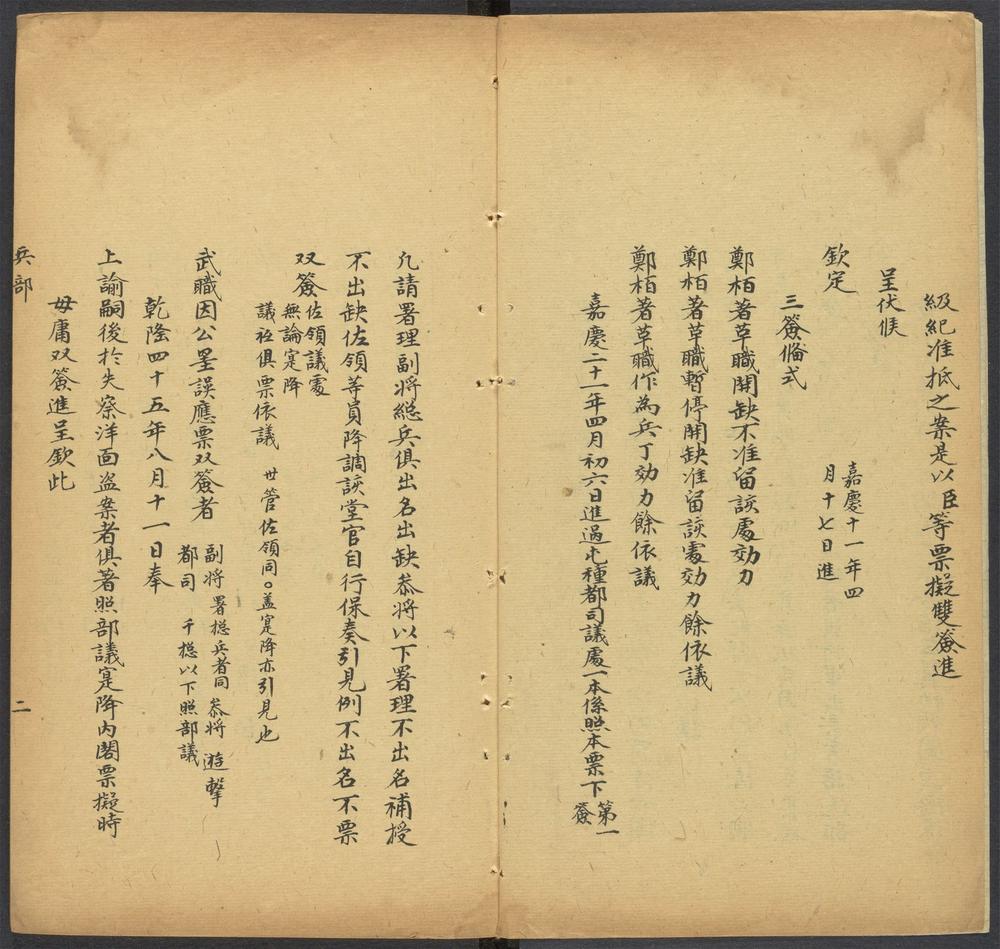 級紀准抵之案是以臣等票擬雙簽進
呈伏候
欽定
嘉慶十一年四
月十七日進
三簽俻式
鄭栢著革職開缺不准留該處効力
鄭栢著革職暫停開缺准留該處効力餘依議
鄭栢著革職作為兵丁効力餘依議
嘉慶二十一年四月初六日進過屯種都司議處一本係照本票下
第一
簽
凡請署理副将緫兵俱出名出缺叅将以下署理不出名補授
不出缺佐領等員降調該堂官自行保奏引見例不出名不票
双簽
佐領議處
無論寔降
議罰俱票依議
世管佐領同○盖寔降亦引見也
武職因公罣誤應票双簽者
副将
署緫兵者同
叅将
遊擊
都司
千總以下照部議
乾隆四十五年八月十一日奉
上諭嗣後於失察洋面盗案者俱著照部議寔降内閣票擬時
毋庸双簽進呈欽此
兵部
二